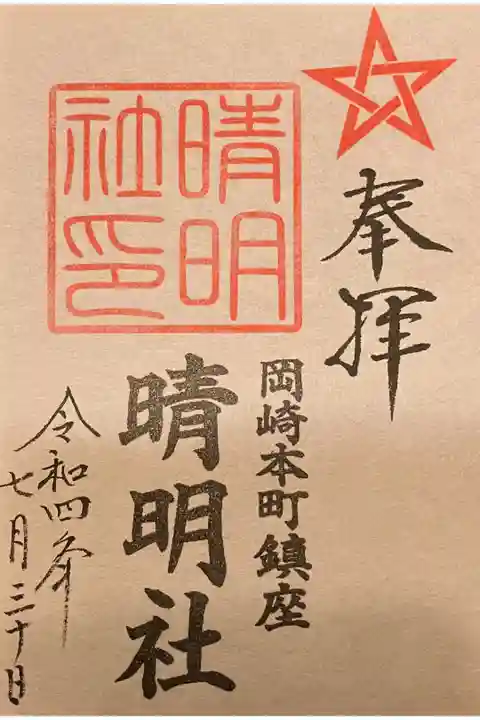 奉拝
岡崎本町鎮座
晴明社
晴明
社印
令和四年
七月三十日